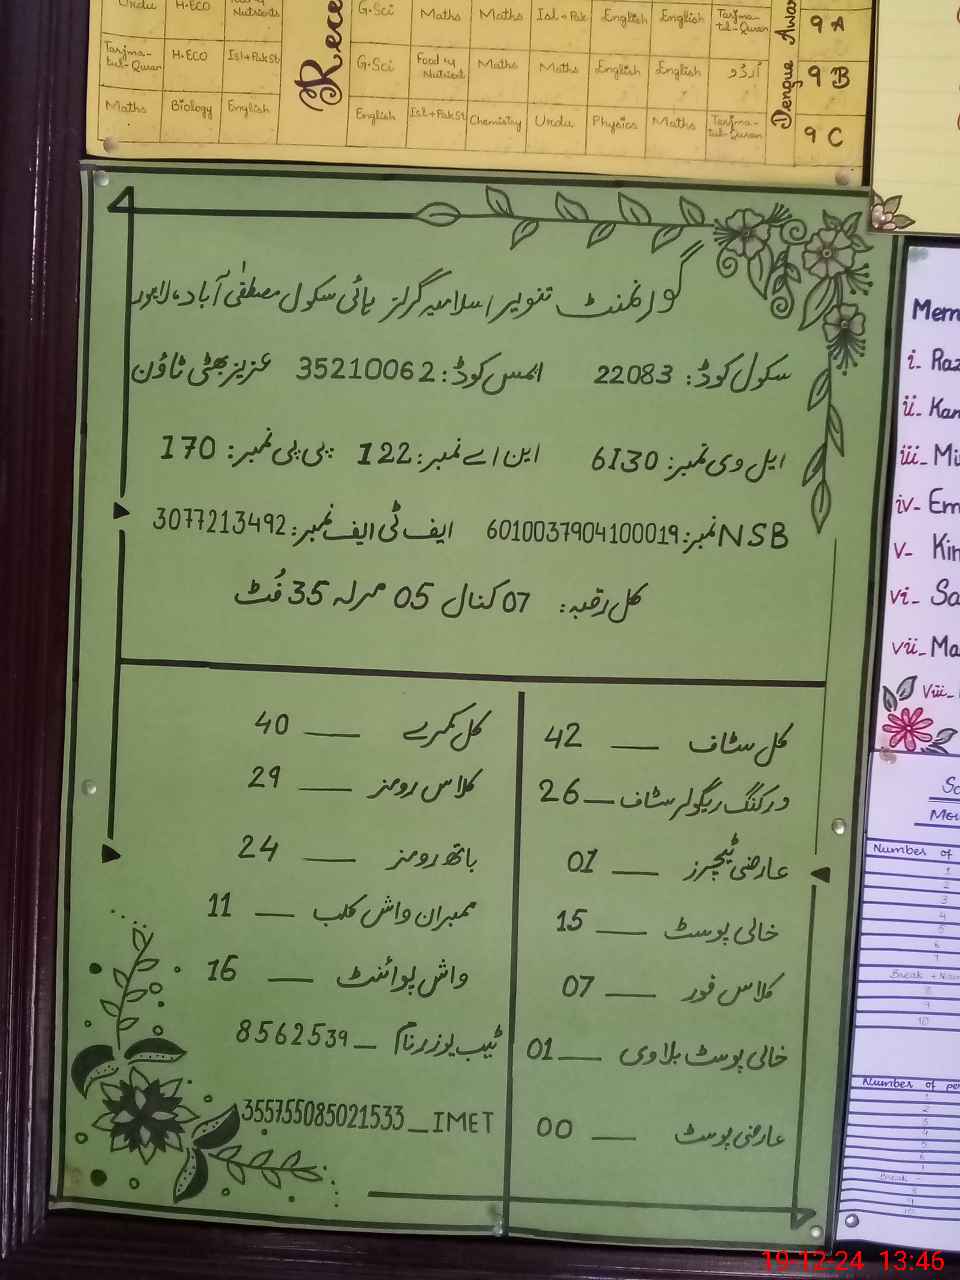 Urdu H.ECO Nutrients G.Sci Maths Maths Isl+Pak English English Tarjma-tul-Quran 9 A
Tarjma-tul-Quran H.ECO Isl+PakSt G.Sci Food & Nutrient Maths Maths English English اُردُو 9 B
Maths Biology English English Isl+PakSt Chemistry Urdu Physics Maths Tarjma-tul-Quran 9 C
Rece
Dengue Awar
گورنمنٹ تنویر اسلامیہ گرلز ہائی سکول مصطفٰی آباد، لاہور
سکول کوڈ: 22083 ایمس کوڈ: 35210062 عزیز بھٹی ٹاؤن
ایل وی نمبر: 6130 این اے نمبر: 122 پی پی نمبر: 170
NSB نمبر: 6010037904100019 ایف ٹی ایف نمبر: 3077213492
کل رقبہ: 07 کنال 05 مرلہ 35 فُٹ
کل سٹاف __ 42
ورکنگ ریگولر سٹاف __ 26
عارضی ٹیچرز __ 01
خالی پوسٹ __ 15
کلاس فور __ 07
خالی پوسٹ بلاوی __ 01
عارضی پوسٹ __ 00
کل کمرے __ 40
کلاس رومز __ 29
باتھ رومز __ 24
ممبران واش کلب __ 11
واش پوائنٹ __ 16
ٹیب یوزر نام __ 8562539
355755085021533 _ IMET
Mem
i. Raz
ii. Kan
iii. Mi
iv. Em
v- Kin
vi- Sa
vii- Ma
viii-
Number of
1
2
3
4
5
6
7
Break
8
9
10
Number of pe
1
2
3
4
5
6
Break
8
9
10
19-12-24 13:46